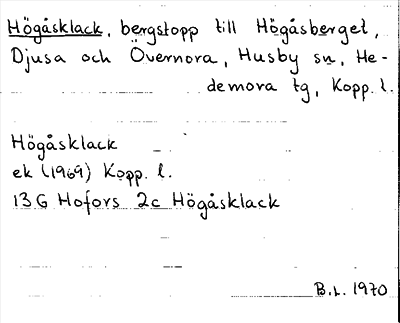 Högåsklack, bergstopp till Högåsberget,
Djusa och Övernora, Husby sn, He-
demora tg, Kopp. l.
Högåsklack
ek (1969) Kopp. l.
13G Hofors 2c Högåsklack
B.L. 1970